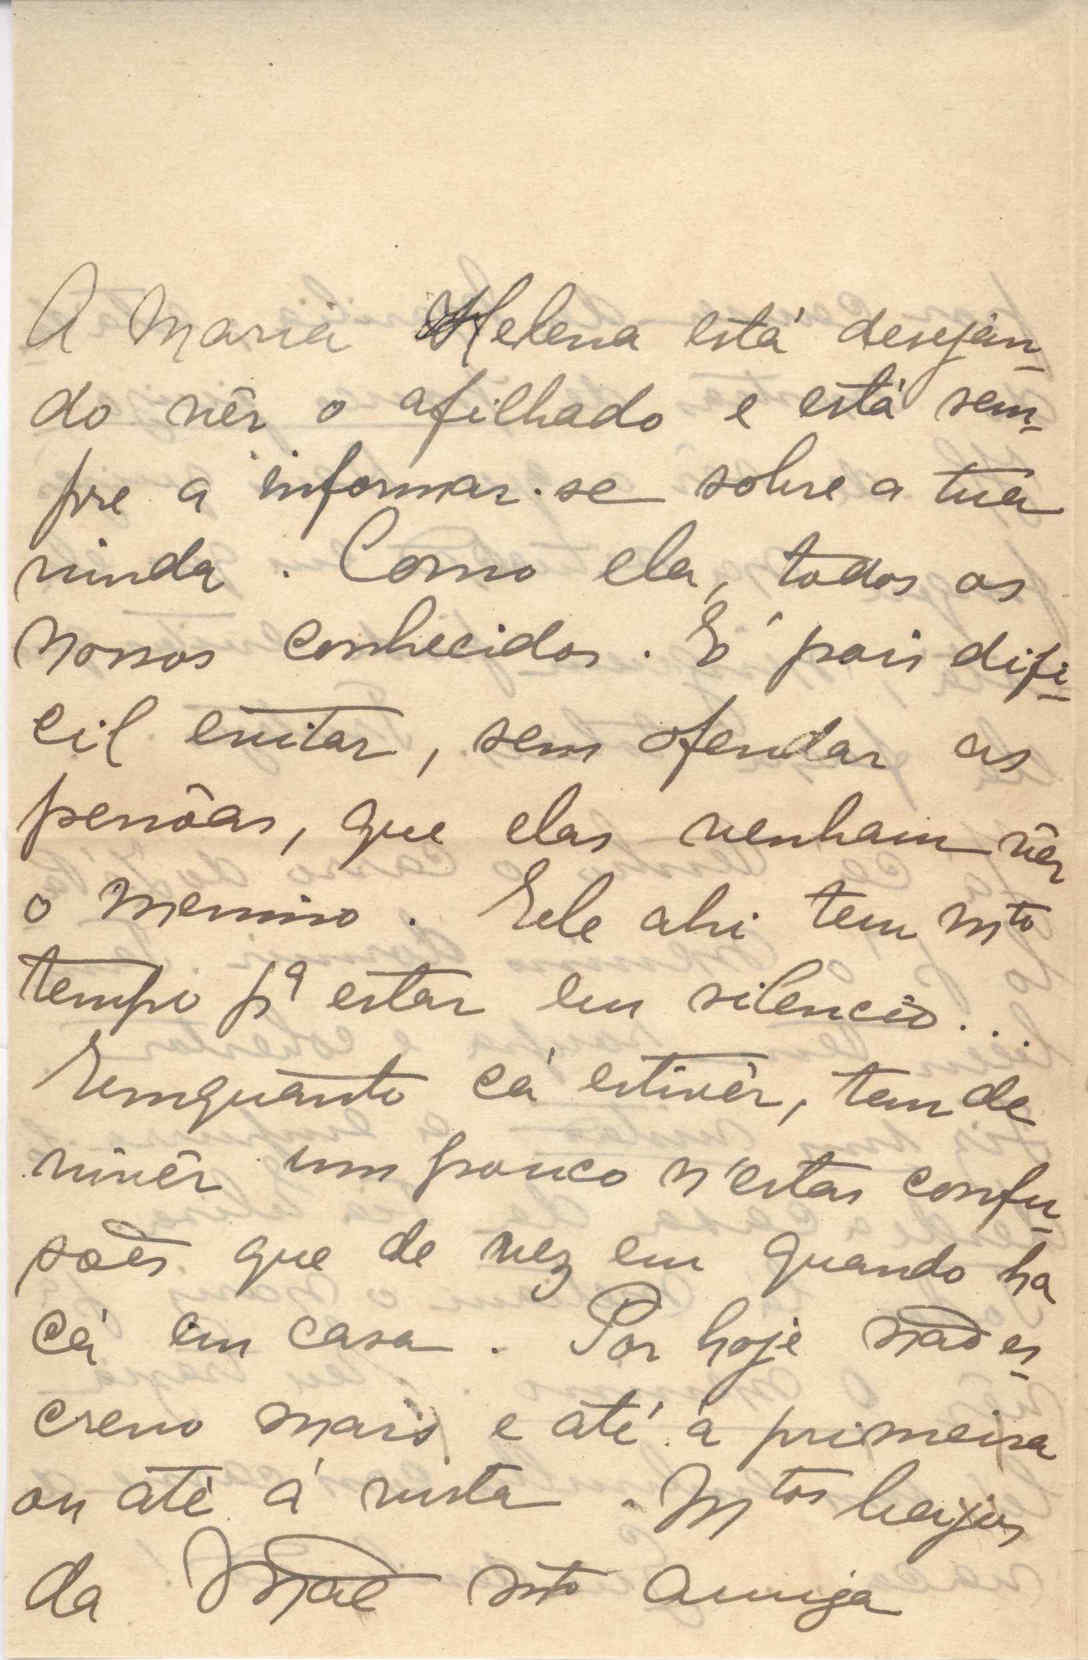 A Maria Helena está desejan-
do vêr o afilhado e está sem-
pre a informar-se sobre a tua
vinda. Como ela, todos os
nossos conhecidos. É pois difi-
cil evitar, sem ofendar as
pessôas, que elas venham vêr
o menino. Ele ahi tem mto
tempo pª estar em silencio...
Emquanto cá estivêr, tem de
vivêr um pouco n'estas confu-
sões que de vez em quando ha
cá em casa. Por hoje não es-
crevo mais e até á primeira
ou até á vista. Mtos beijos
da Mãe mto amiga